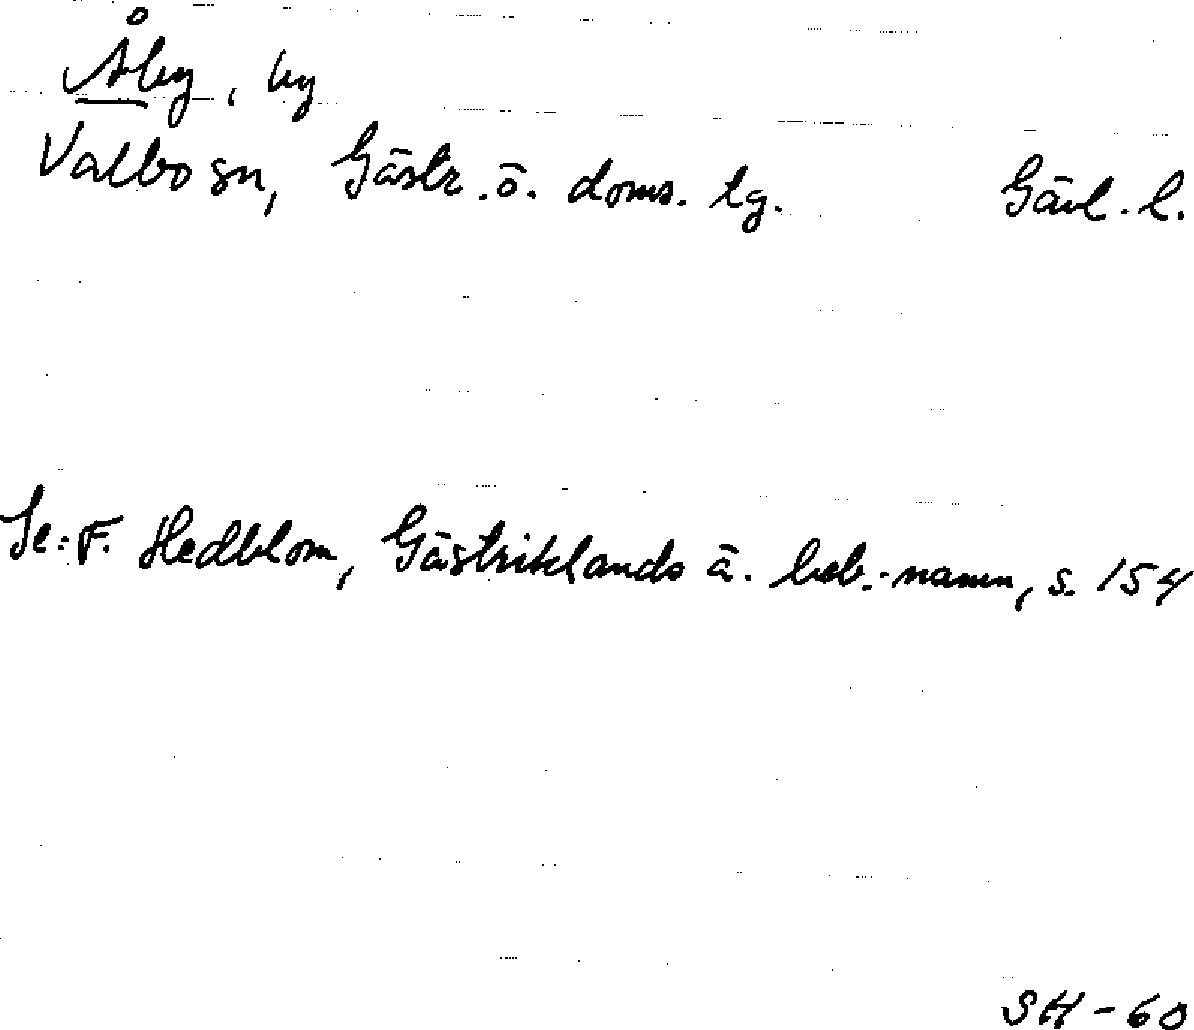 Åby, by
Valbo sn, Gästr. ö. doms. lg. Gävl. l.
Se: F. Hedblom, Gästriklands ä. beb.-namn, s. 154
SH-60